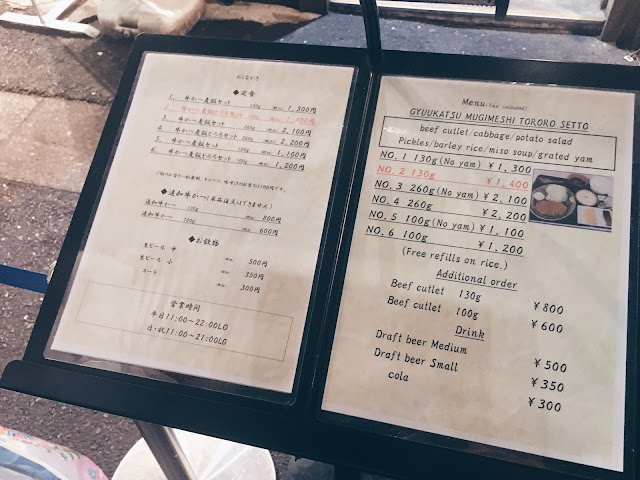 おしながき
◆定食
1. 牛かつ麦飯セット 130g (税込) 1,300円
2. 牛かつ麦飯とろろセット 130g (税込) 1,400円
3. 牛かつ麦飯セット 260g (税込) 2,100円
4. 牛かつ麦飯とろろセット 260g (税込) 2,200円
5. 牛かつ麦飯セット 100g (税込) 1,100円
6. 牛かつ麦飯とろろセット 100g (税込) 1,200円
◆追加牛かつ(単品注文はできません)
追加牛かつ 130g (税込) 800円
追加牛かつ 100g (税込) 600円
◆お飲物
生ビール 中 (税込) 500円
生ビール 小 (税込) 350円
コーラ (税込) 300円
営業時間
平日11:00~22:00LO
日・祝11:00~21:00LO
Menu(tax included)
GYUUKATSU MUGIMESHI TORORO SETTO
beef cutlet/cabbage/potato salad
Pickles/barley rice/miso soup/grated yam
NO. 1 130g(No yam) ¥1,300
NO. 2 130g ¥1,400
NO. 3 260g(No yam) ¥2,100
NO. 4 260g ¥2,200
NO. 5 100g(No yam) ¥1,100
NO. 6 100g ¥1,200
(Free refills on rice.)
Additional order
Beef cutlet 130g ¥800
Beef cutlet 100g ¥600
Drink
Draft beer Medium ¥500
Draft beer Small ¥350
cola ¥300